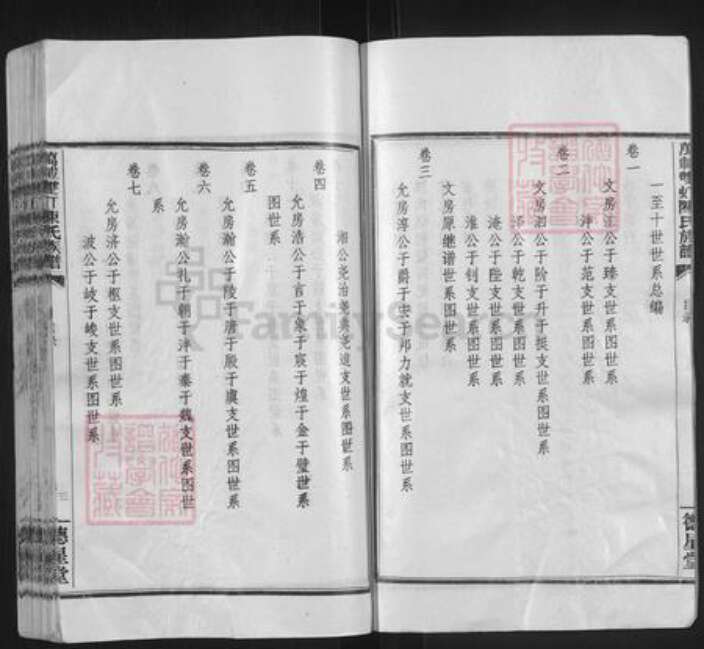 卷一
一至十世世系总编
文房江公于臻支世系图世系
泮公于范支世系图世系
卷二
文房泗公于阶于升于挺支世系图世系
泽公于乾支世系图世系
淹公于陛支世系图世系
淮公于钊支世系图世系
文房原继谱世系图世系
卷三
允房淳公于爵于宏于邦力就支世系图世系
目录
德星堂
卷四
湘公尧治尧典尧道支世系图世系
允房浩公于言于象于宸于煌于金于璧世系
图世系
卷五
允房瀚公于陵于唐于殿于虞支世系图世系
卷六
允房瀚公礼于朝于泮于秦于魏支世系图世
系
卷七
允房济公于枢支世系图世系
波公于岐于峻支世系图世系
陈氏族谱
德星堂
FamilySearch